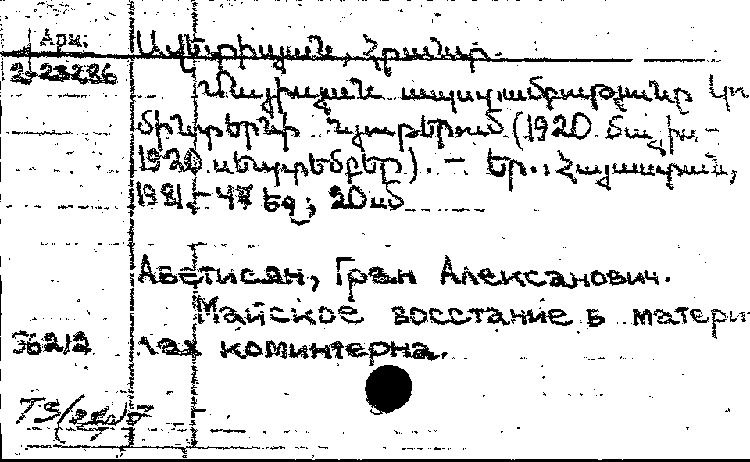 Арм.
Ավետիսյան, Հրանտ.
2-23286
Մայիսյան ապստամբությունը Կո
մինտերնի նյութերում (1920 մայիս-
1920 սեպտեմբեր). – Եր.: Հայաստան,
1981. – 47 եզ; 20սմ
Аветисян, Гран Александрович.
Майское восстание в матери
56212 лах коминтерна.